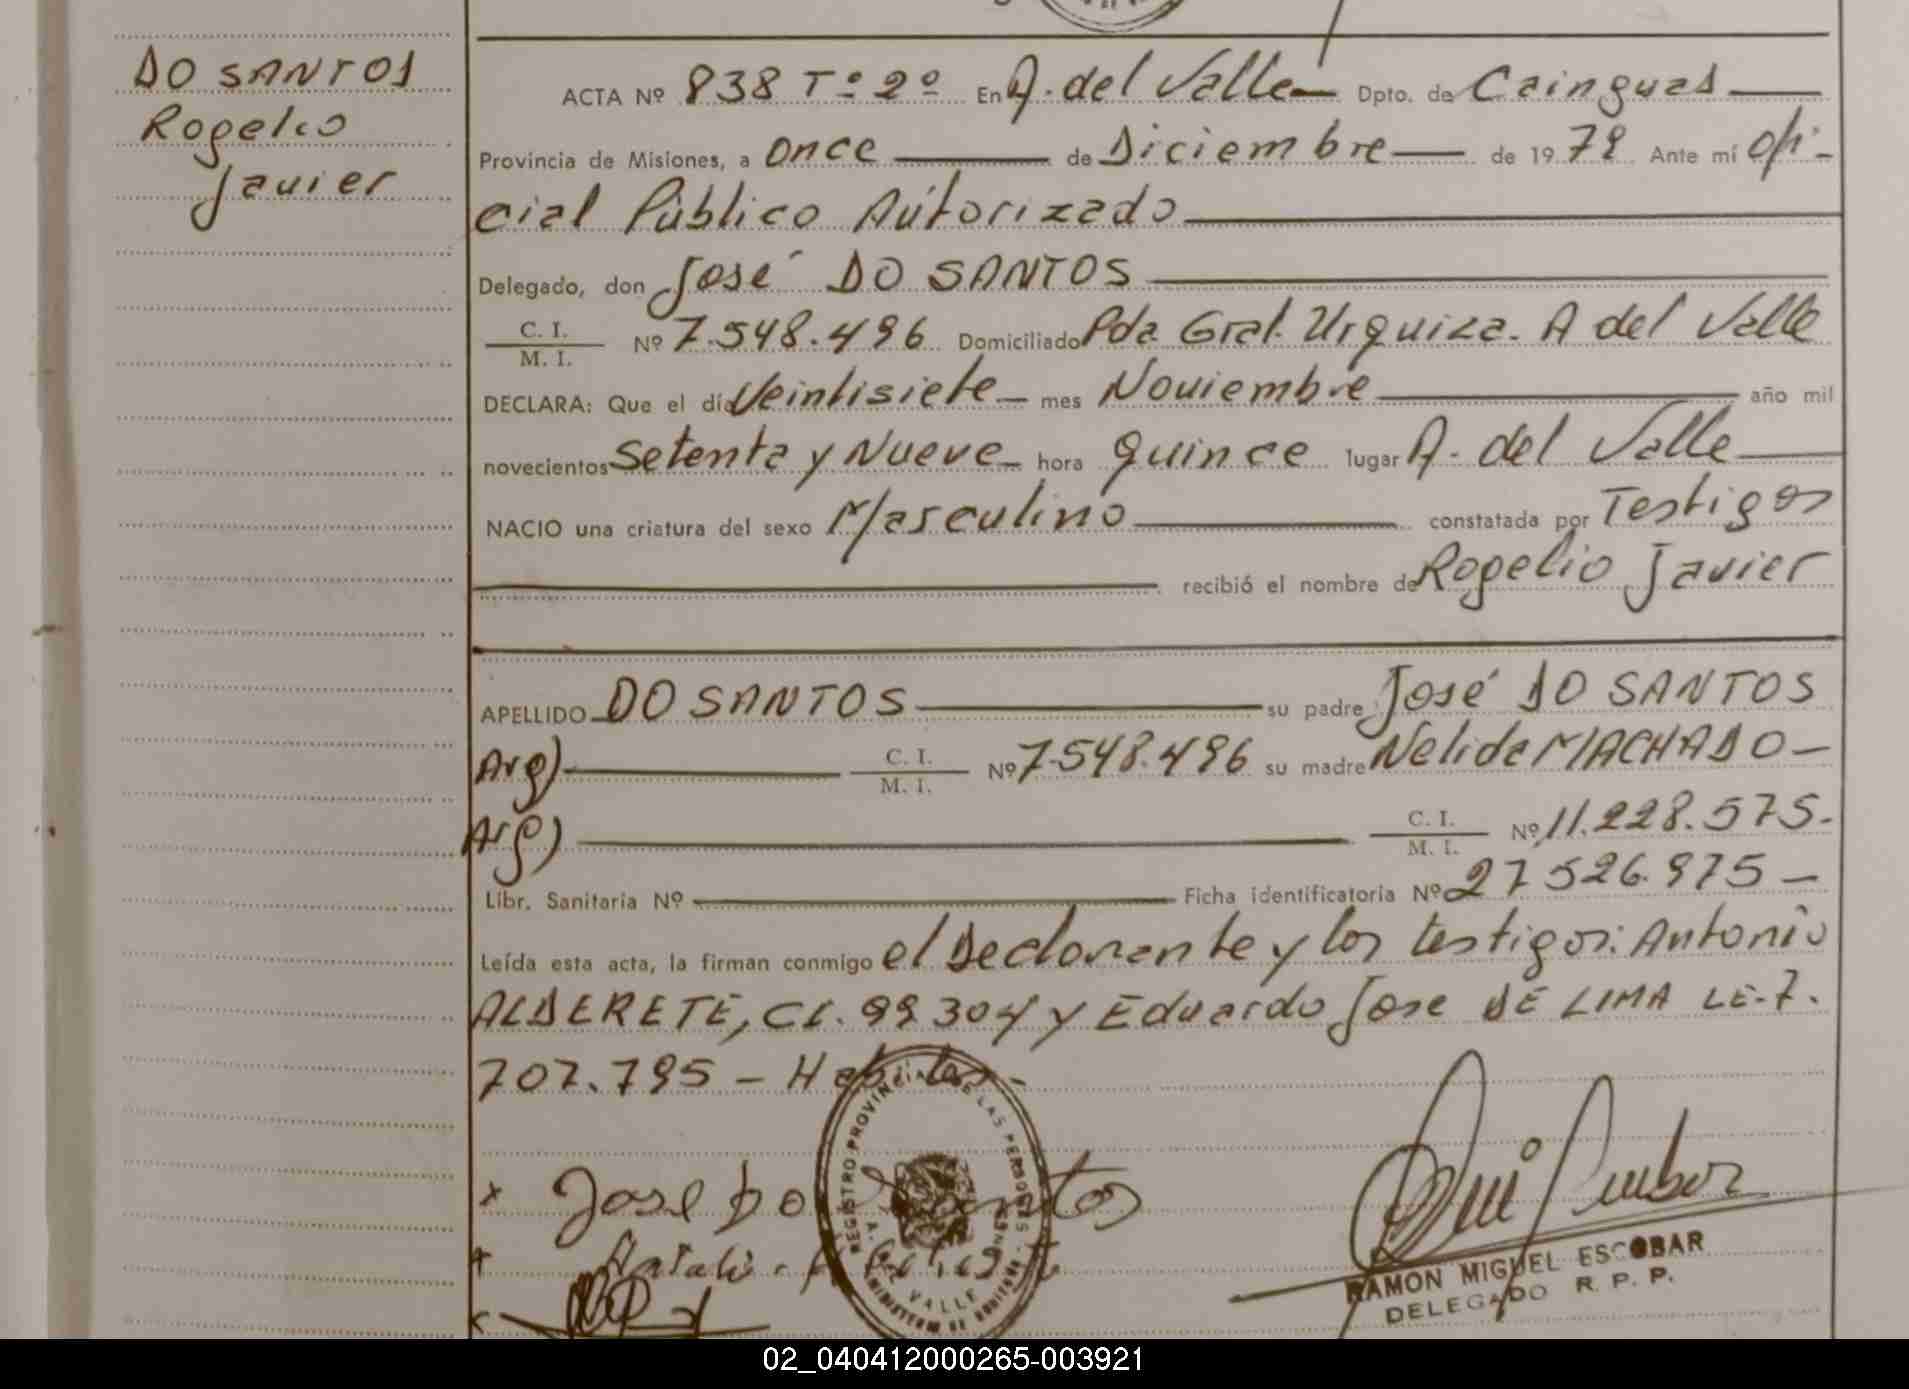 DO SANTOS
Rogelio
Javier
ACTA Nº 838 Tº 2º En A. del Valle Dpto. de Cainguas
Provincia de Misiones, a once de Diciembre de 1979 Ante mí ofi-
cial Público Autorizado
Delegado, don José DO SANTOS
C. I.
M. I. Nº 7.548.496 Domiciliado Pda Gral. Urquiza. A del Valle
DECLARA: Que el día Veintisiete mes Noviembre año mil
novecientos Setenta y Nueve hora quince lugar A. del Valle
NACIO una criatura del sexo Masculino constatada por Testigos
recibió el nombre de Rogelio Javier
APELLIDO DO SANTOS su padre José DO SANTOS
Arg) C. I. M. I. Nº 7.548.496 su madre Nelida MACHADO
Arg) C. I. M. I. Nº 11.228.575.
Libr. Sanitaria Nº Ficha identificatoria Nº 27526.975
Leída esta acta, la firman conmigo el Declarante y los testigos: Antonio
ALDERETE, CI. 99304 y Eduardo Jose DE LIMA LE-7.
707.795 - Habiles -
REGISTRO PROVINCIAL DE LAS PERSONAS
A. DEL VALLE
MISIONES
Jose Do Santos
RAMON MIGUEL ESCOBAR
DELEGADO R. P. P.
02_040412000265-003921